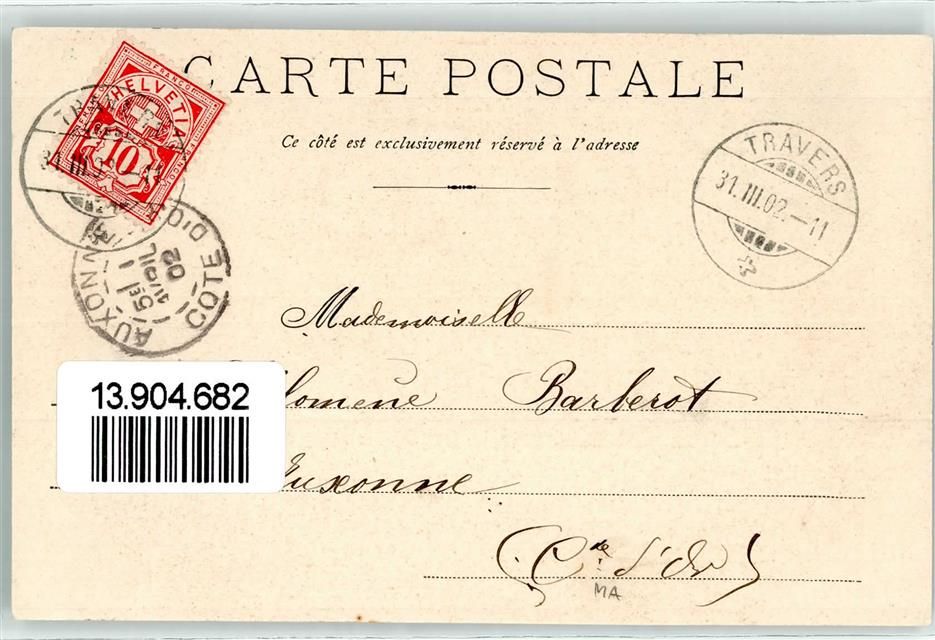 CARTE POSTALE
Ce côté est exclusivement réservé à l'adresse
FRANCO
HELVETIA
10
FRANCO
TRAVERS
31.III.02.-11
AUXONNE
5E
1
AVRIL
02
COTE D'OR
Mademoiselle
lomène Barberot
13.904.682
uxonne
(Cte d'Or)
MA